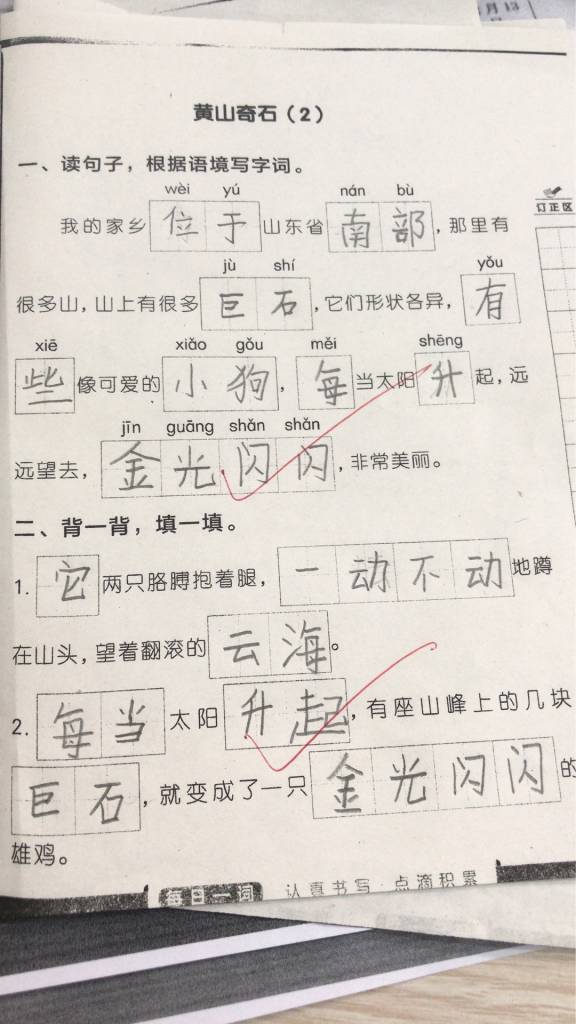 月 13
黄山奇石（2）
一、读句子，根据语境写字词。
wèi yú nán bù
我的家乡位于山东省南部，那里有
jù shí yǒu
很多山，山上有很多巨石，它们形状各异，有
xiē xiǎo gǒu měi shēng
些像可爱的小狗，每当太阳升起，远
jīn guāng shǎn shǎn
远望去，金光闪闪，非常美丽。
二、背一背，填一填。
1. 它两只胳膊抱着腿，一动不动地蹲
在山头，望着翻滚的云海。
2. 每当太阳升起，有座山峰上的几块
巨石，就变成了一只金光闪闪的
雄鸡。
每日一词 认真书写 点滴积累
订正区